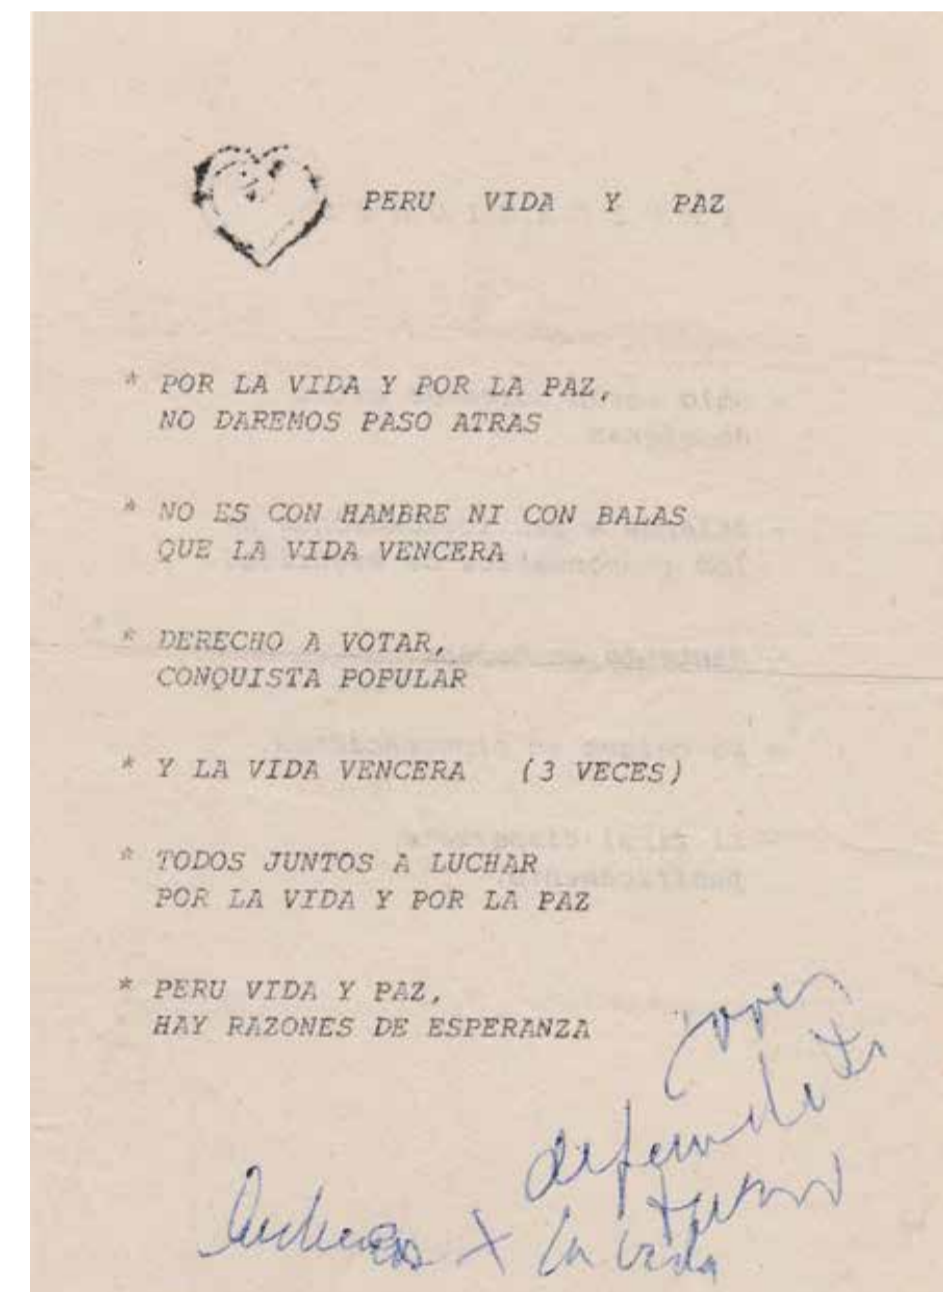 PERU VIDA Y PAZ
* POR LA VIDA Y POR LA PAZ,
NO DAREMOS PASO ATRAS
* NO ES CON HAMBRE NI CON BALAS
QUE LA VIDA VENCERA
* DERECHO A VOTAR,
CONQUISTA POPULAR
* Y LA VIDA VENCERA (3 VECES)
* TODOS JUNTOS A LUCHAR
POR LA VIDA Y POR LA PAZ
* PERU VIDA Y PAZ,
HAY RAZONES DE ESPERANZA
joven
defiende tu
X la vida